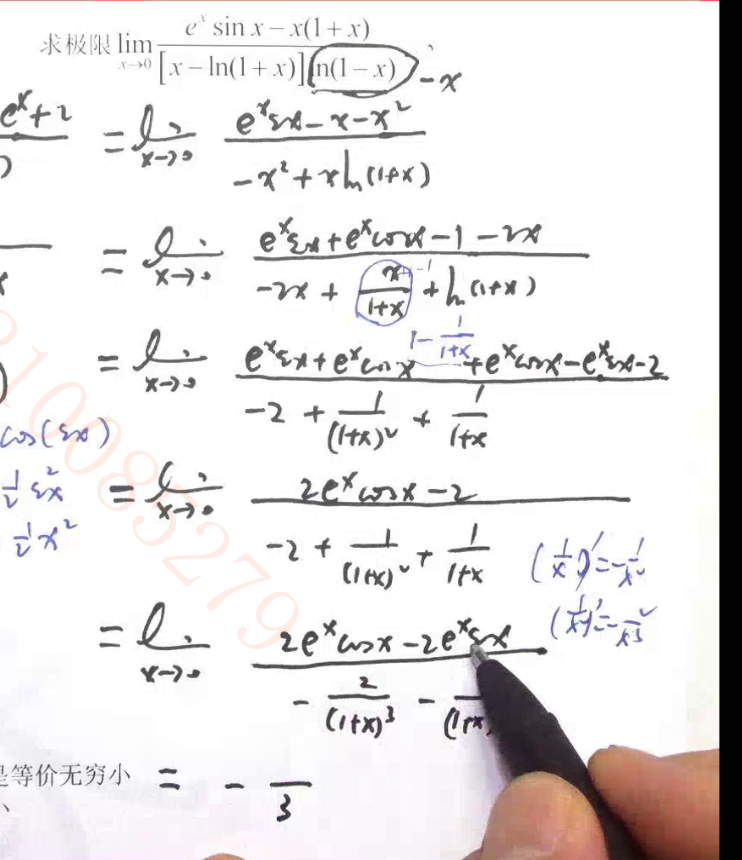 求极限 lim x→0 (e^x sin x − x(1+x)) / ([x − ln(1+x)] ln(1−x))
−x
e^x+2
= lim x→0 (e^x sin x − x − x²) / (−x² + x ln(1+x))
= lim x→0 (e^x sin x + e^x cos x − 1 − 2x) / (−2x + x/(1+x) + ln(1+x))
1 − 1/(1+x)
= lim x→0 (e^x sin x + e^x cos x + e^x cos x − e^x sin x − 2) / (−2 + 1/(1+x)² + 1/(1+x))
cos(sin x)
1/2 sin²x
= lim x→0 (2e^x cos x − 2) / (−2 + 1/(1+x)² + 1/(1+x))
1/2 x²
(1/x)' = −1/x²
= lim x→0 (2e^x cos x − 2e^x sin x) / (−2/(1+x)³ − /(1+x)
是等价无穷小
= − /3
10083279